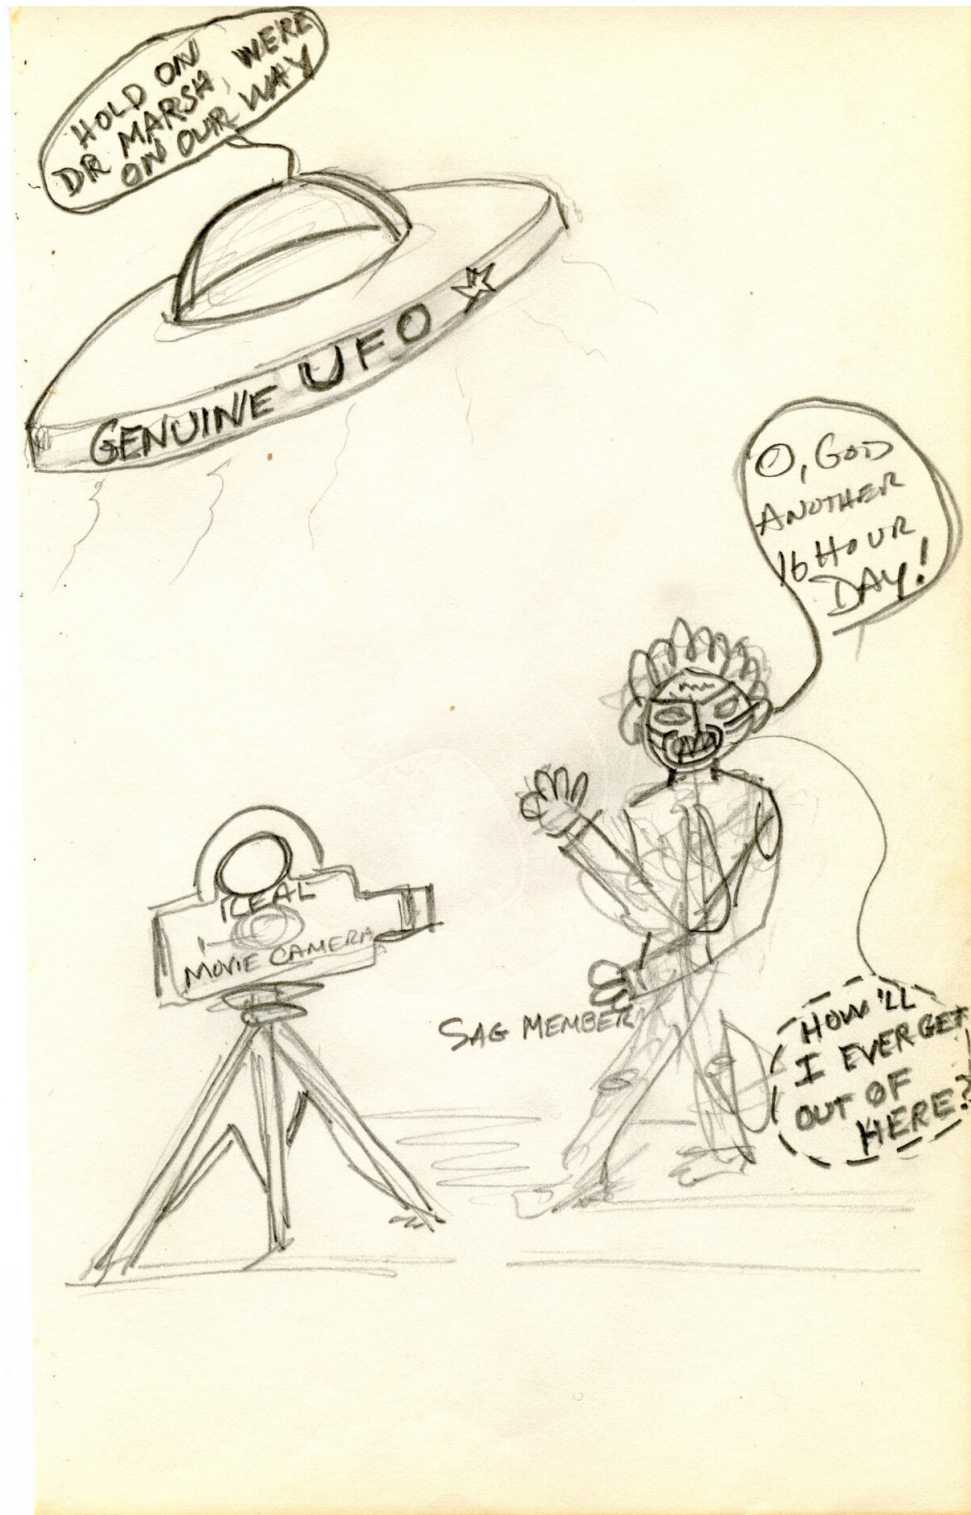 HOLD ON
DR MARSH, WERE
ON OUR WAY
GENUINE UFO
O, GOD
ANOTHER
16 HOUR
DAY!
REAL
MOVIE CAMERA
SAG MEMBER
HOW'LL
I EVER GET
OUT OF
HERE?